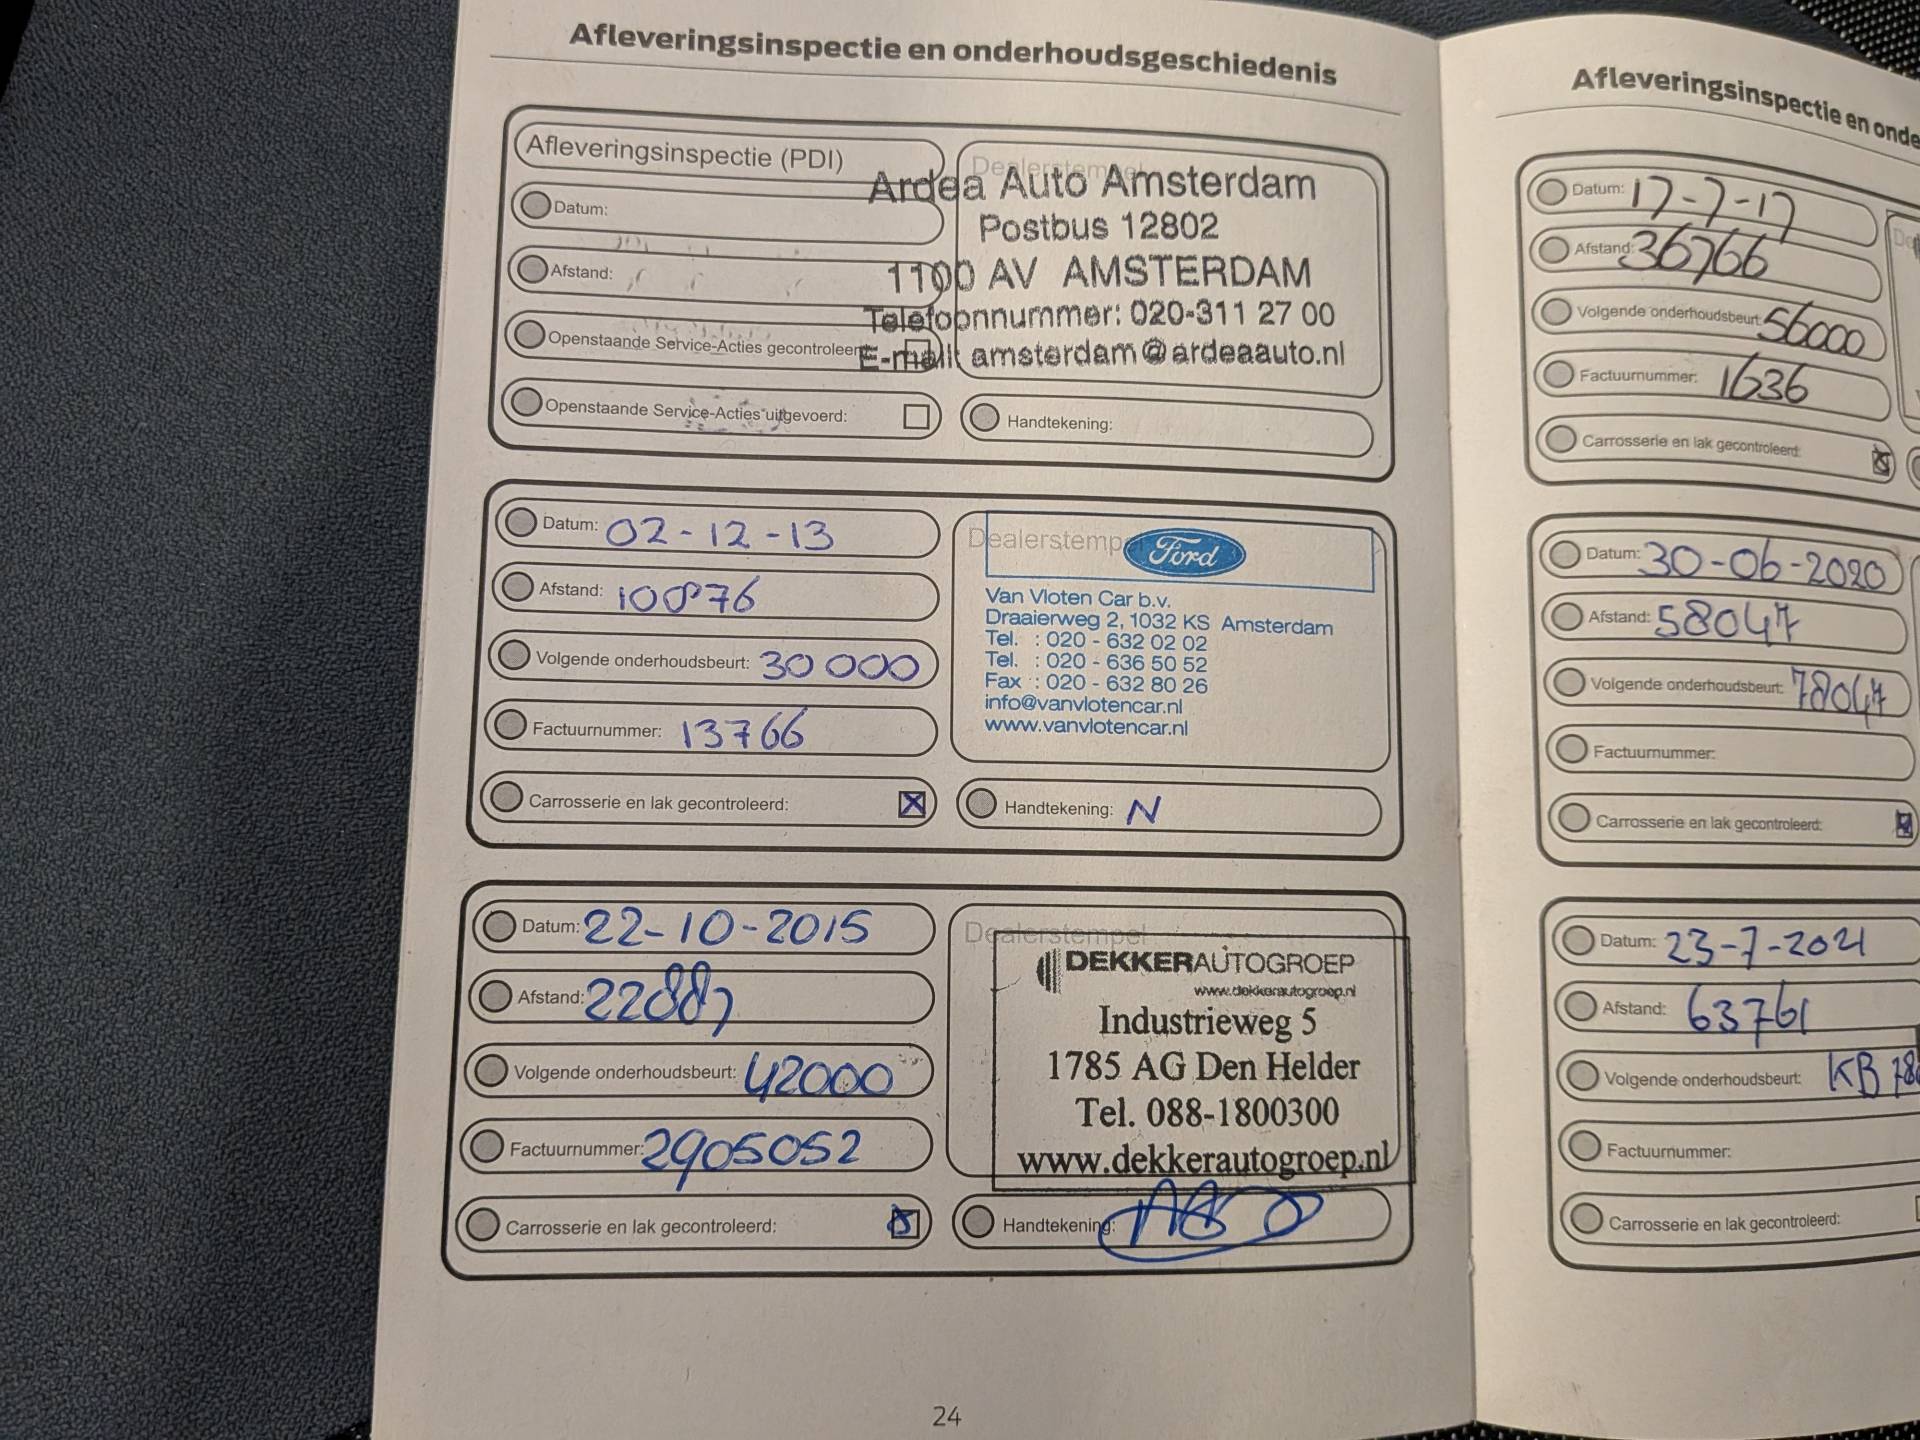 Afleveringsinspectie en onderhoudsgeschiedenis
Afleveringsinspectie (PDI)
Datum:
Afstand:
Openstaande Service-Acties gecontroleerd
Openstaande Service-Acties uitgevoerd:
Dealerstempel
Ardea Auto Amsterdam
Postbus 12802
1100 AV AMSTERDAM
Telefoonnummer: 020-311 27 00
E-mail: amsterdam@ardeaauto.nl
Handtekening:
Datum: 02-12-13
Afstand: 10876
Volgende onderhoudsbeurt: 30 000
Factuurnummer: 13766
Carrosserie en lak gecontroleerd:
Dealerstempel
Ford
Van Vloten Car b.v.
Draaierweg 2, 1032 KS Amsterdam
Tel. : 020 - 632 02 02
Tel. : 020 - 636 50 52
Fax : 020 - 632 80 26
info@vanvlotencar.nl
www.vanvlotencar.nl
Handtekening: N
Datum: 22-10-2015
Afstand: 22887
Volgende onderhoudsbeurt: 42000
Factuurnummer: 2905052
Carrosserie en lak gecontroleerd:
Dealerstempel
DEKKERAUTOGROEP
www.dekkerautogroep.nl
Industrieweg 5
1785 AG Den Helder
Tel. 088-1800300
www.dekkerautogroep.nl
Handtekening:
24
Afleveringsinspectie en onde
Datum: 17-7-17
Afstand: 36766
Volgende onderhoudsbeurt: 56000
Factuurnummer: 1636
Carrosserie en lak gecontroleerd:
Datum: 30-06-2020
Afstand: 58047
Volgende onderhoudsbeurt: 78047
Factuurnummer:
Carrosserie en lak gecontroleerd:
Datum: 23-7-2021
Afstand: 63761
Volgende onderhoudsbeurt: KB 78
Factuurnummer:
Carrosserie en lak gecontroleerd: